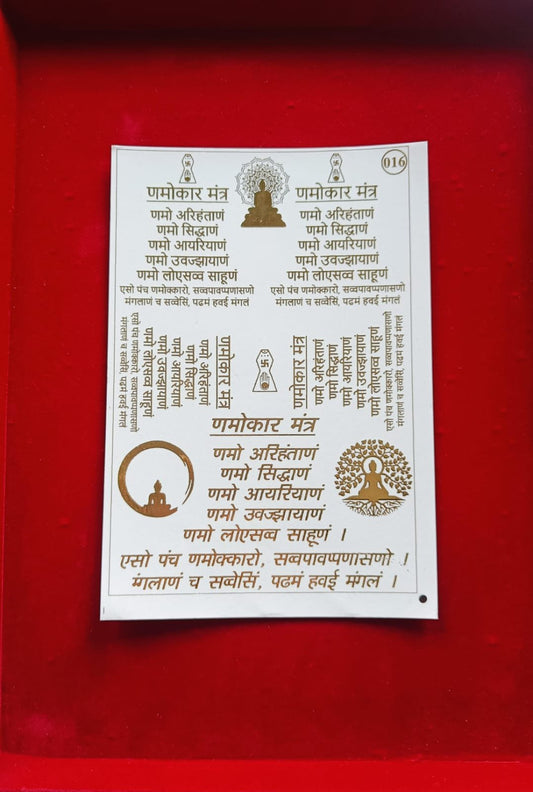 016
णमोकार मंत्र
णमो अरिहंताणं
णमो सिद्धाणं
णमो आयरियाणं
णमो उवज्झायाणं
णमो लोएसव्व साहूणं
एसो पंच णमोक्कारो, सव्वपावप्पणासणो
मंगलाणं च सव्वेसिं, पढमं हवई मंगलं
णमोकार मंत्र
णमो अरिहंताणं
णमो सिद्धाणं
णमो आयरियाणं
णमो उवज्झायाणं
णमो लोएसव्व साहूणं
एसो पंच णमोक्कारो, सव्वपावप्पणासणो
मंगलाणं च सव्वेसिं, पढमं हवई मंगलं
णमोकार मंत्र
णमो अरिहंताणं
णमो सिद्धाणं
णमो आयरियाणं
णमो उवज्झायाणं
णमो लोएसव्व साहूणं
एसो पंच णमोक्कारो, सव्वपावप्पणासणो
मंगलाणं च सव्वेसिं, पढमं हवई मंगलं
णमोकार मंत्र
णमो अरिहंताणं
णमो सिद्धाणं
णमो आयरियाणं
णमो उवज्झायाणं
णमो लोएसव्व साहूणं
एसो पंच णमोक्कारो, सव्वपावप्पणासणो
मंगलाणं च सव्वेसिं, पढमं हवई मंगलं
णमोकार मंत्र
णमो अरिहंताणं
णमो सिद्धाणं
णमो आयरियाणं
णमो उवज्झायाणं
णमो लोएसव्व साहूणं ।
एसो पंच णमोक्कारो, सव्वपावप्पणासणो ।
मंगलाणं च सव्वेसिं, पढमं हवई मंगलं ।